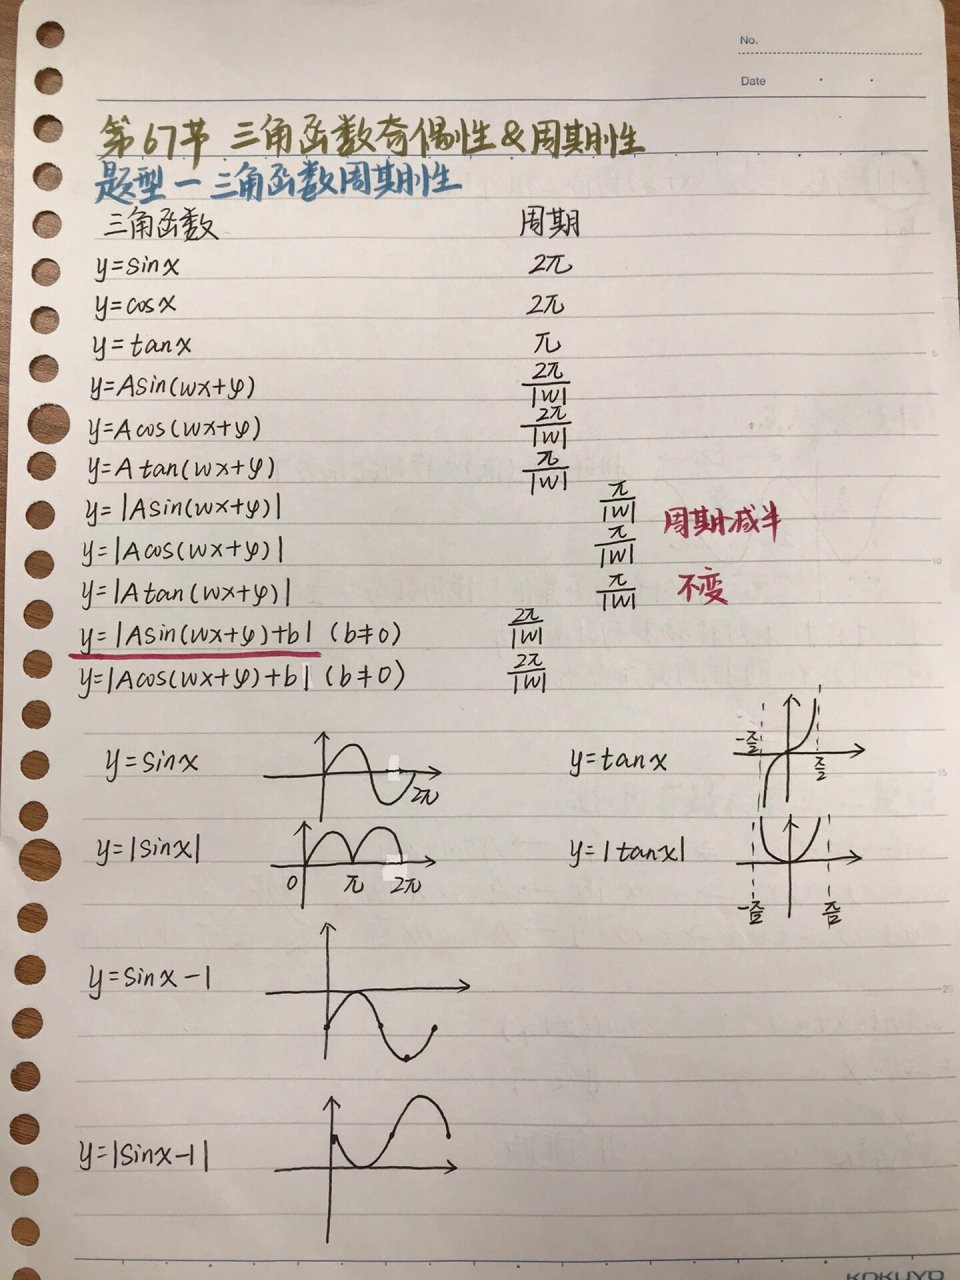 No.
Date
第67节 三角函数奇偶性&周期性
题型一 三角函数周期性
三角函数 周期
y=sinx 2π
y=cosx 2π
y=tanx π
y=Asin(wx+φ) 2π/|w|
y=Acos(wx+φ) 2π/|w|
y=Atan(wx+φ) π/|w|
y=|Asin(wx+φ)| π/|w| 周期减半
y=|Acos(wx+φ)| π/|w|
y=|Atan(wx+φ)| π/|w| 不变
y=|Asin(wx+φ)+b| (b≠0) 2π/|w|
y=|Acos(wx+φ)+b| (b≠0) 2π/|w|
y=sinx 2π y=tanx -π/2 π/2
y=|sinx| 0 π 2π y=|tanx| -π/2 π/2
y=sinx-1
y=|sinx-1|
KOKUYO